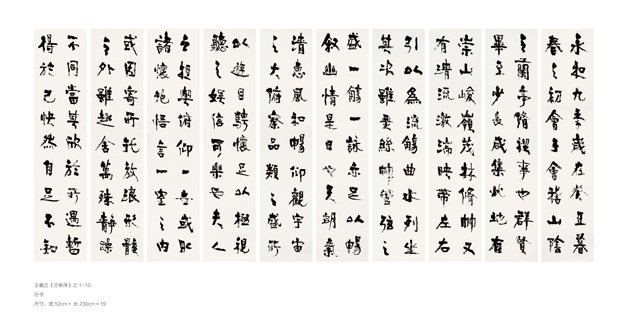 永和九年歲在癸丑暮
春之初會于會稽山陰
之蘭亭脩禊事也群賢
畢至少長咸集此地有
崇山峻嶺茂林脩竹又
有清流激湍映帶左右
引以為流觴曲水列坐
其次雖無絲竹管弦之
盛一觴一詠亦足以暢
敘幽情是日也天朗氣
清惠風和暢仰觀宇宙
之大俯察品類之盛所
以遊目騁懷足以極視
聽之娛信可樂也夫人
之相與俯仰一世或取
諸懷抱悟言一室之內
或因寄所託放浪形骸
之外雖趣舍萬殊靜躁
不同當其欣於所遇暫
得於己快然自足不知
王羲之《兰亭序》之 1-10
行书
尺寸：宽 52cm × 长 230cm × 19